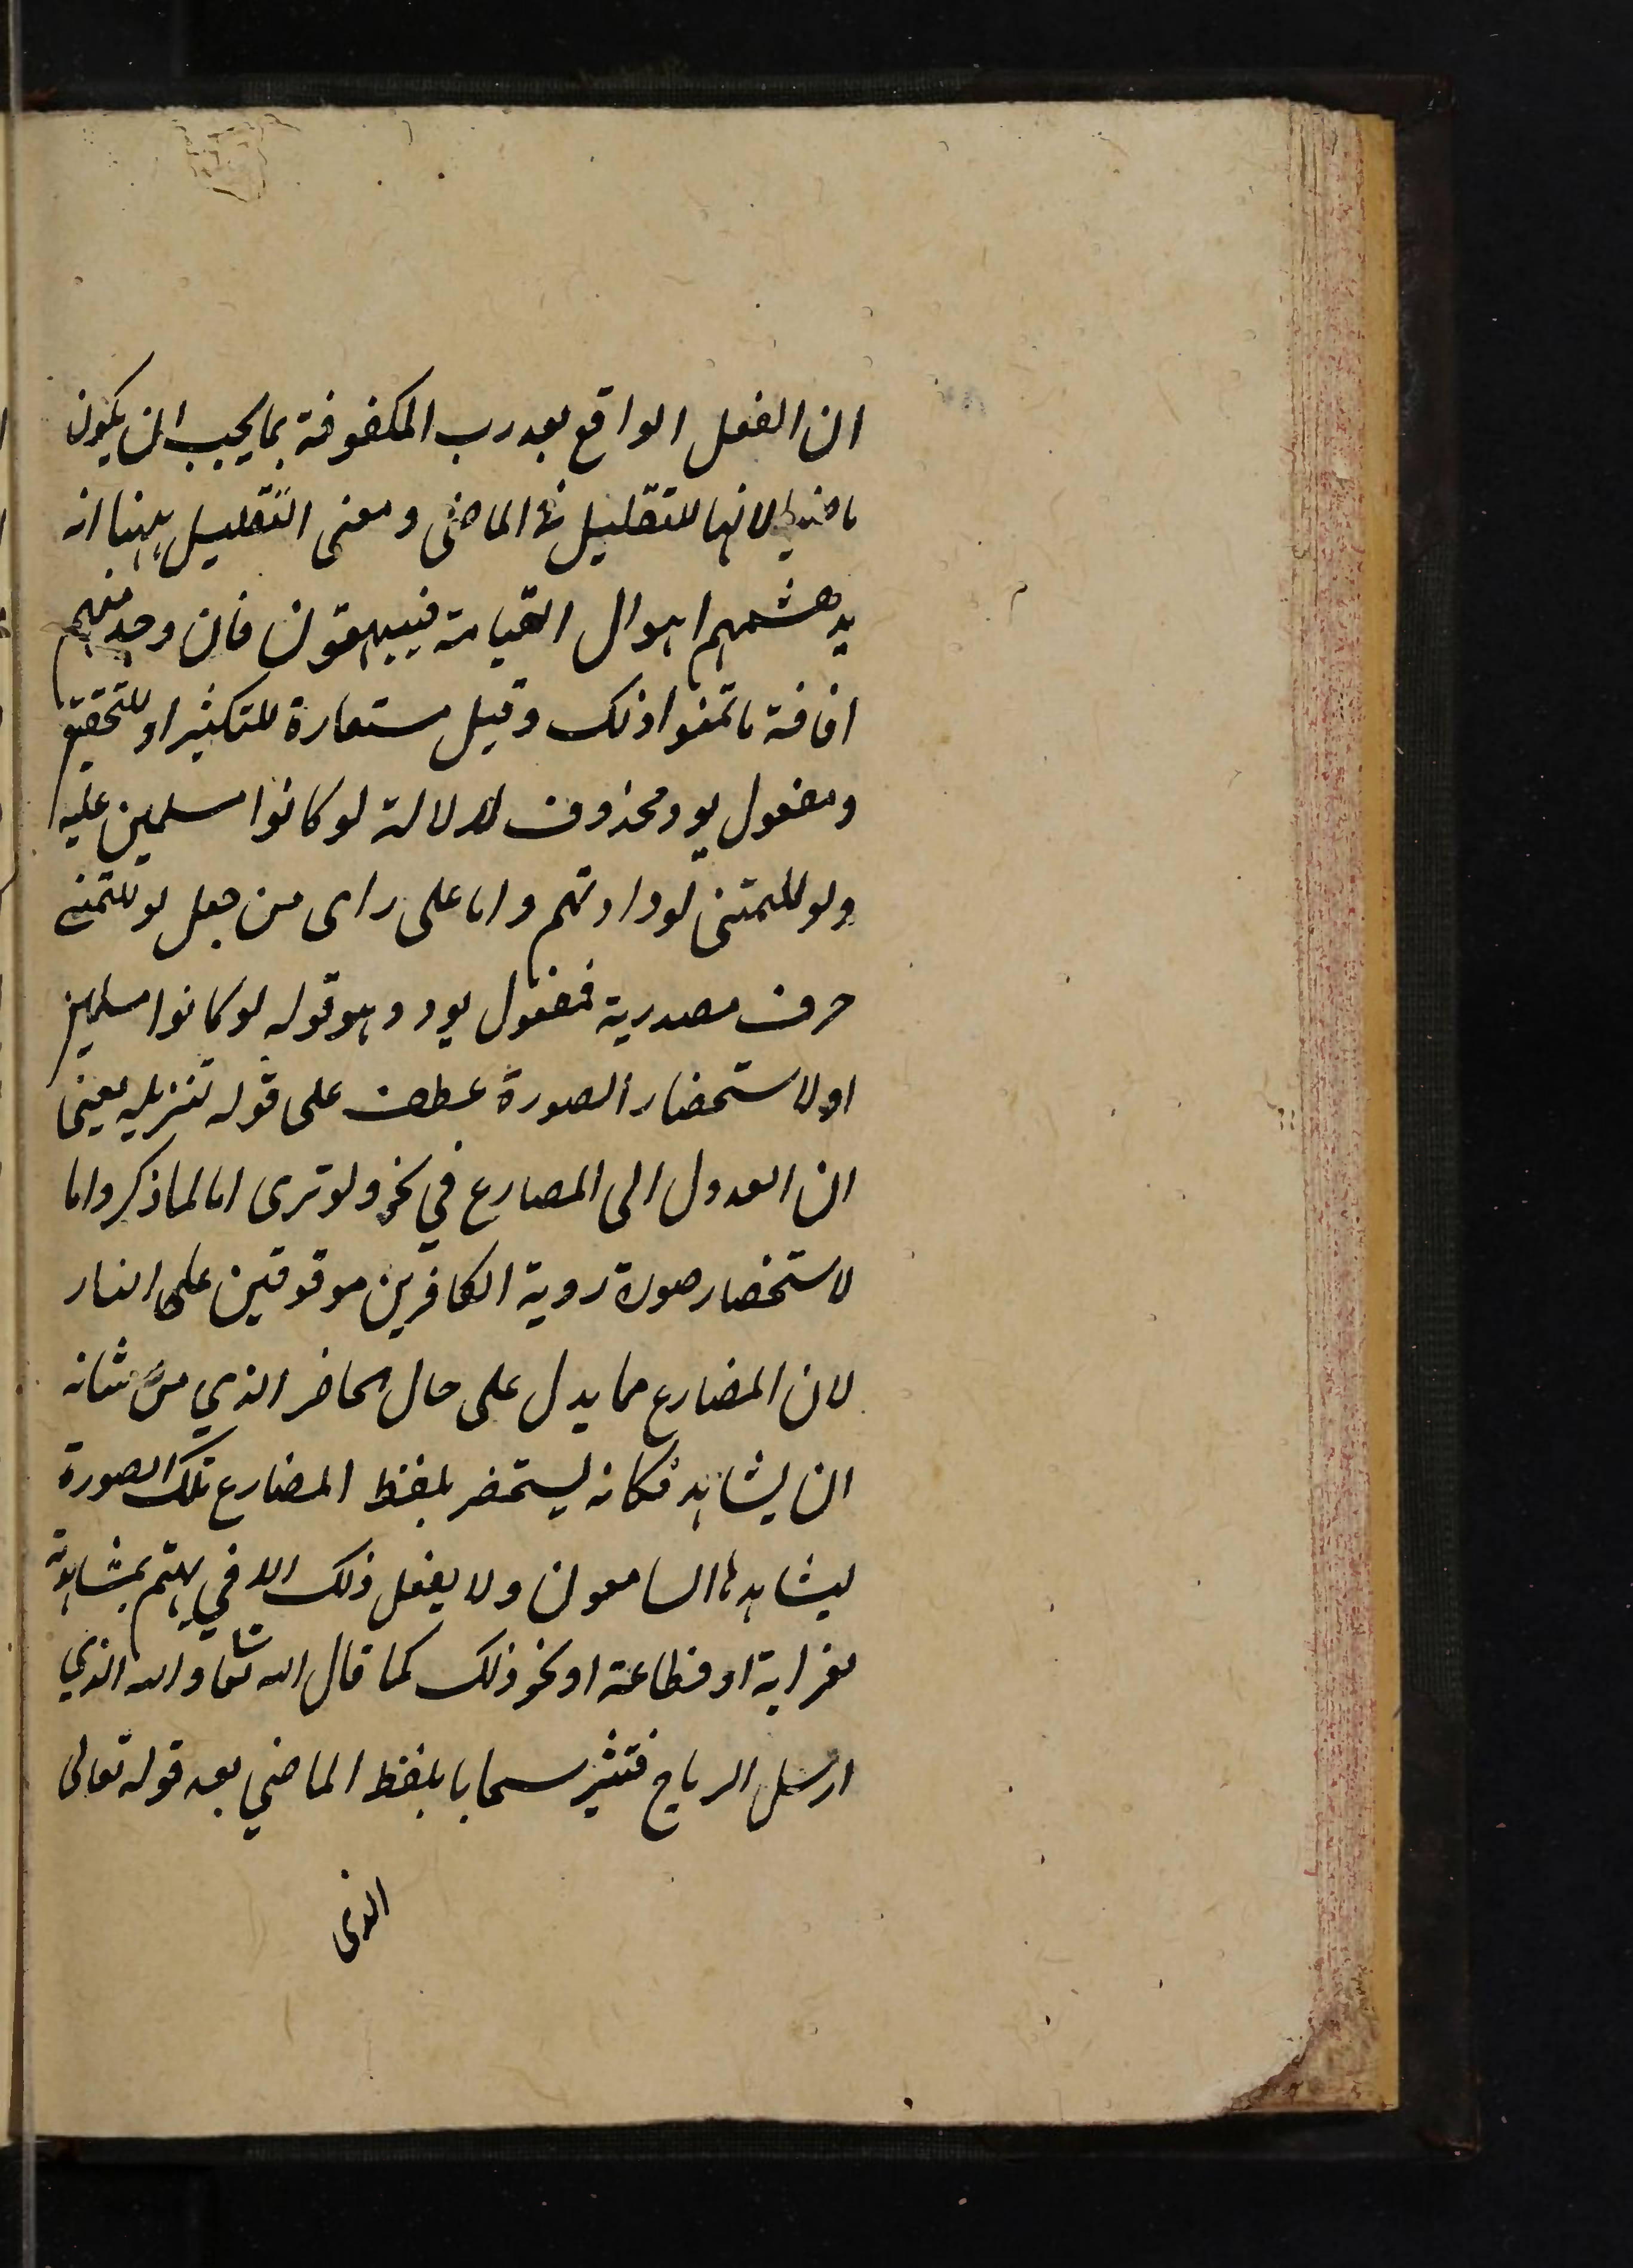 ان الفعل الواقع بعد رب المكفوفة بما يجب ان يكون
ماضيا لانها للتقليل فى الماضى ومعنى التقليل ههنا انه
يدهشهم اهوال القيامة فيبهتون فان وجد منهم
افاقة ما تمنوا ذلك وقيل مستعارة للتكثير او للتحقيق
ومفعول يود محذوف لدلالة لو كانوا مسلمين عليه
ولو للتمنى لودادتهم واما على راى من جعل لو للتمنى
حرف مصدرية فمفعول يود وهو قوله لو كانوا مسلمين
او لاستحضار الصورة عطف على قوله تنزيله يعنى
ان العدول الى المصارع في نحو ولو ترى اما لما ذكر واما
لاستحضار صورة روية الكافرين موقوفين على النار
لان المضارع مما يدل على حال الحاضر الذي من شانه
ان يشاهد فكانه يستحضر بلفظ المضارع تلك الصورة
ليشاهدها السامعون ولا يفعل ذلك الا في يهتم بمشاهدته
لغرابة او فظاعة او نحو ذلك كما قال الله تعا والله الذي
ارسل الرياح فتثير سحابا بلفظ الماضي بعد قوله تعالى
الذى